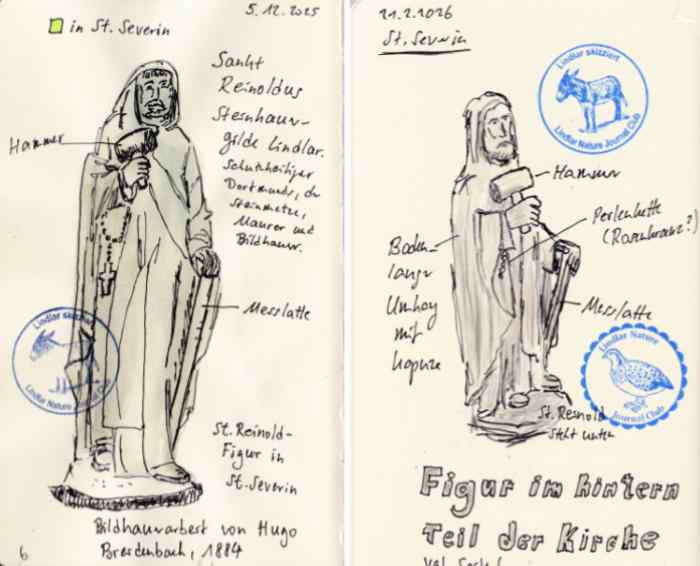 5.12.2025
in St. Severin
Sankt
Reinoldus
Steinhauer-
gilde Lindlar.
Schutzheiliger
Dortmunds, der
Steinmetze,
Maurer und
Bildhauer.
Hammer
Messlatte
Lindlar skizziert
Lindlar Nature Journal Club
St. Reinold-
Figur in
St. Severin
Bildhauerarbeit von Hugo
Breidenbach, 1884
6
21.2.2026
St. Severin
Lindlar skizziert
Lindlar Nature Journal Club
Hammer
Perlenkette
(Rosenkranz?)
Boden-
langer
Umhang
mit
Kapuze
Messlatte
Lindlar Nature
Journal Club
St. Reinold
steht unten
Figur im hintern
Teil der Kirche